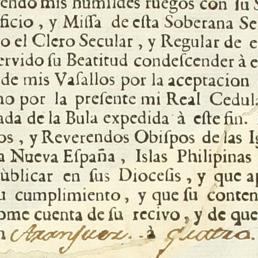 endo mis humildes ruegos con su S
ficio, y Missa de esta Soberana Se
o el Clero Secular, y Regular de e
ervido su Beatitud condescender à e
de mis Vasallos por la aceptacion
no por la presente mi Real Cedula
ada de la Bula expedida à este fin.
os, y Reverendos Obispos de las Is
a Nueva España, Islas Philipinas
ublicar en sus Diocesis, y que ap
u cumplimiento, y que su conten
ome cuenta de su recivo, y de que
n Aranjuez.. à Quatro.